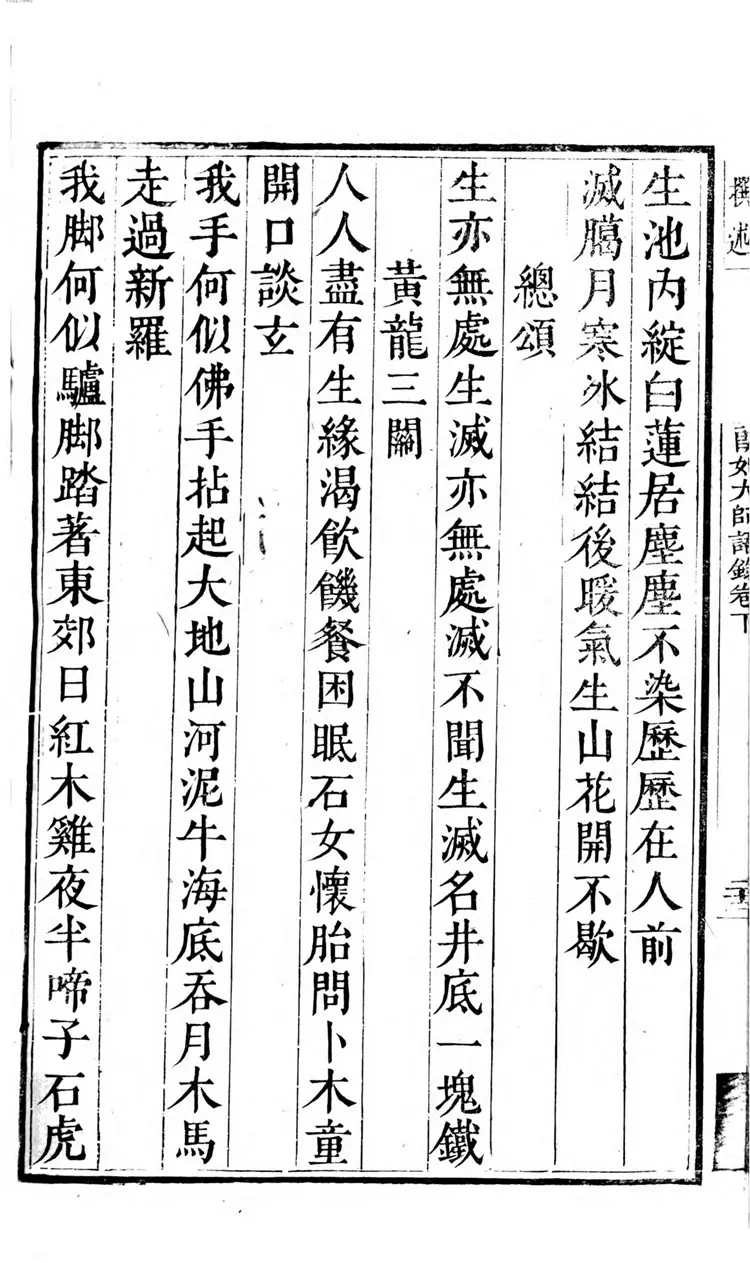 撰述
大師語錄卷下
生池內綻白蓮居塵塵不染歷歷在人前
滅臈月寒冰結結後暖氣生山花開不歇
總頌
生亦無處生滅亦無處滅不聞生滅名井底一塊鐵
黃龍三關
人人盡有生緣渴飲饑餐困眠石女懷胎問卜木童
開口談玄
我手何似佛手拈起大地山河泥牛海底吞月木馬
走過新羅
我脚何似驢脚踏著東郊日紅木雞夜半啼子石虎